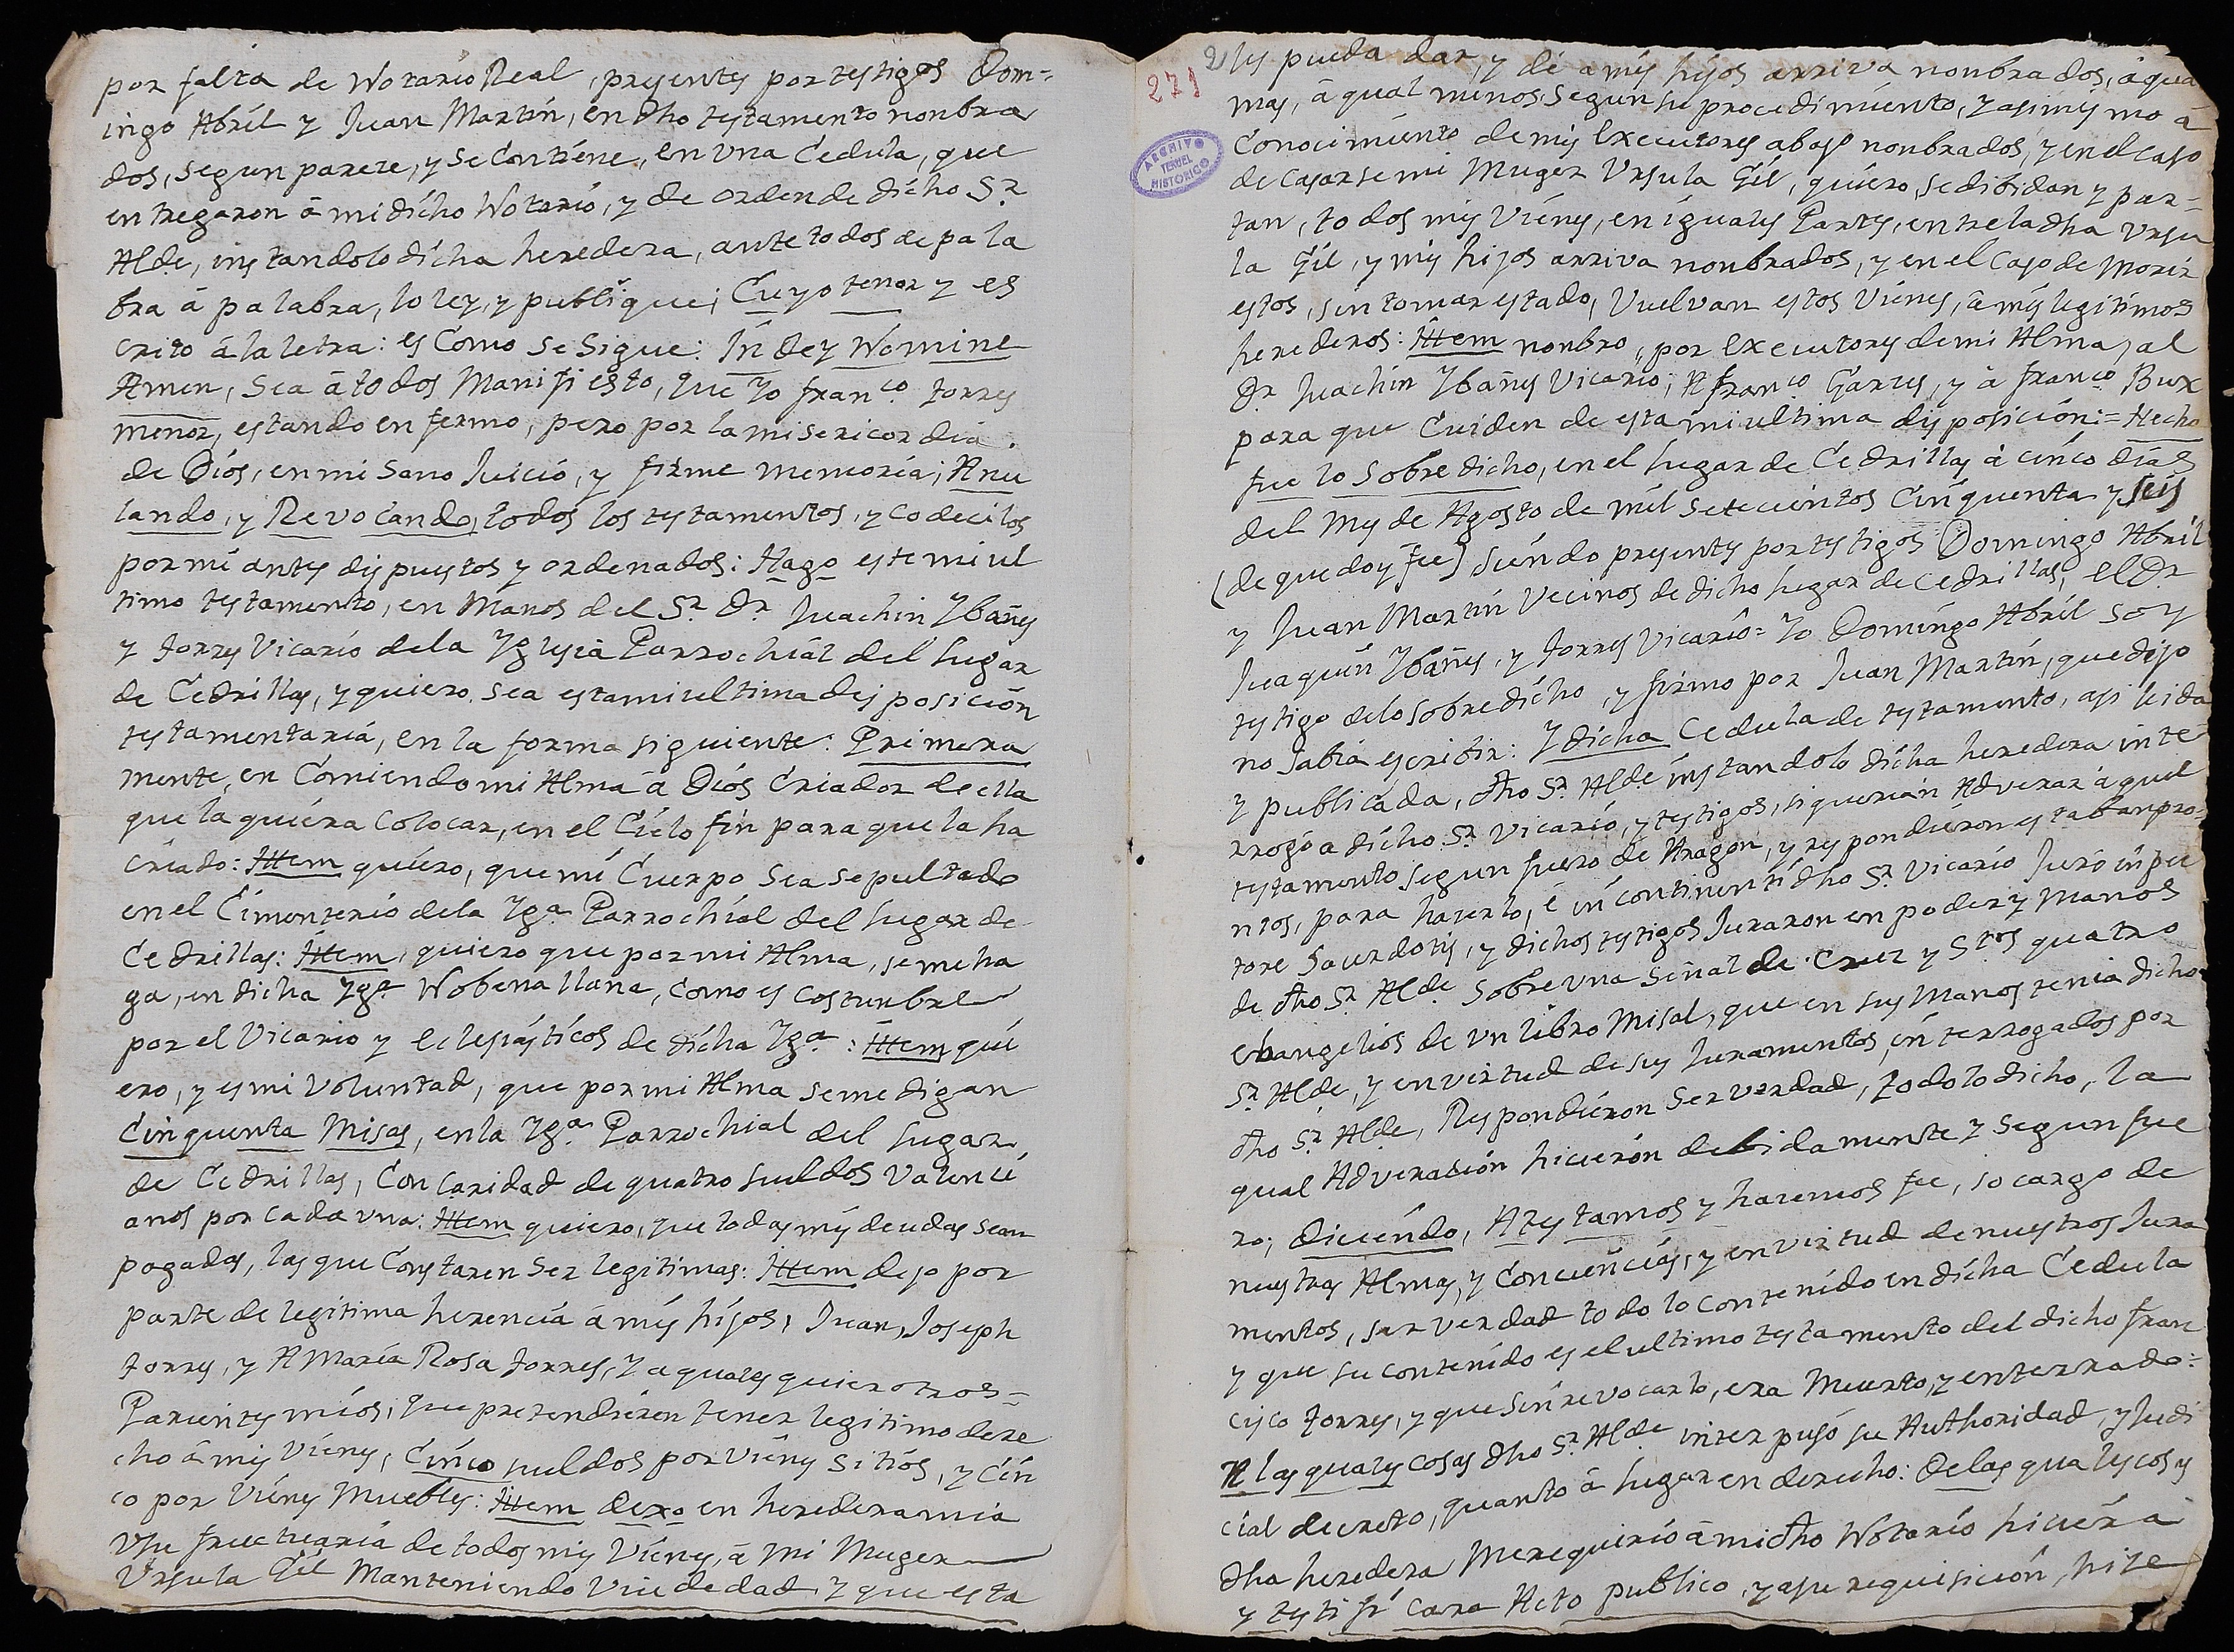 por falta de Notario Real, presentes por testigos Dom=
ingo Abril y Juan Martin, en dho testamento nonbra
dos, segun parece, y se Contiene, en una Cedula, que
entregaron â mi dicho Notario, y de orden de dicho Sr.
Alde, instandolo dicha heredera, ante todos de pala
bra â palabra, lo ley, y publique; Cuyo tenor y es
crito â la letra: es Como se Sigue: In Dey Nomine
Amen, Sea â todos Manifiesto, que Yo franco. torres
menor, estando enfermo, pero por la misericordia
de Dios, en mi Sano Juicio, y firme memoria; Anu
lando, y Revocando, todos los testamentos, y codecilos
por mi antes dispuestos y ordenados: Hago este mi ul
timo testamento, en Manos del Sr. Dr. Juachin Ybañes
y torres Vicario dela Yglesia Parrochial del lugar
de Cedrillas, y quiero sea esta mi ultima disposición
testamentaria, en la forma siguiente: Primera
mente, en Comiendo mi Alma â Dios Criador de ella
que la quiera Colocar, en el Cielo fin para que la ha
criado: Ittem quiero, que mi Cuerpo Sea sepultado
en el Cimenterio dela Yga. Parrochial del lugar de
Cedrillas: Ittem, quiero que por mi Alma, se me ha
ga, en dicha Yga. Nobena llana, como es costunbre
por el Vicario y Eclesiásticos de dicha Yga.: Ittem qui
ero, y es mi voluntad, que por mi Alma se me digan
Cinquenta Misas, en la Yga. Parrochial del lugar
de Cedrillas, Con Caridad de quatro sueldos Valenci
anos por cada una: Ittem quiero, que todas mis deudas sean
pagadas, las que Constaren Ser legitimas: Ittem dejo por
parte de legitima herencia â mis hijos, Juan, Joseph
torres, y A María Rosa torres, y a quales quier otros=
Parientes mios, que pretendieren tener legitimo dere
cho â mis Vienes, Cinco sueldos por Vienes Sitios, y Cin
co por Vienes Muebles: Ittem dexo en heredera mia
Usufructuaria de todos mis Vienes, â mi Muger
Ursula Gil Manteniendo Viudedad y que esta
271
2 les pueda dar, y dê a mis hijos arriva nonbrados, â qual
mas, â qual menos, segun su procedimiento, y asimismo â
Conocimiento de mis Executores abajo nonbrados, y en el caso
de Casarse mi Muger Ursula Gil, quiero, se dibidan y par=
tan, todos mis Vienes, en iguales Partes, entre la dha Ursu
la Gil, y mis hijos arriva nonbrados, y en el Caso de Morir
estos, sin tomar estado, Vuelvan estos Vienes, â mis legitimos
herederos: Ittem nonbro, por Executores de mi Alma, al
Dr. Juachin Ybañes Vicario; A franco. Garces, y â franco. Bux
para que Cuiden de esta mi ultima disposición:= Hecho
fue lo Sobre dicho, en el lugar de Cedrillas â cinco dias
del Mes de Agosto de mil Setecientos Cinquenta y seis
(de que doy fee) siendo presentes por testigos Domingo Abril
y Juan Martin Vecinos de dicho lugar de Cedrillas, el Dr
Juaquin Ybañes, y torres Vicario= Yo Domingo Abril soy
testigo de lo Sobredicho, y firmo por Juan Martin, que dijo
no Sabia escribir: Y dicha Cedula de testamento, asi leida
y publicada, dho Sr. Alde. instandolo dicha heredera inte
rrogó a dicho Sr. Vicario, y testigos, si querian Adverar aquel
testamento segun fuero de Aragon, y respondieron estaban pro=
ntos, para hazerlo, é in continenti dho Sr. Vicario Juró in pec
tore Sacerdotis, y dichos testigos Juraron en poder y Manos
de dho Sr. Alde. Sobre una Señal de Cruz y Stos quatro
ebangelios de un libro Misal, que en sus Manos tenia dicho
Sr. Alde, y en virtud de sus Juramentos, interrogados por
dho Sr. Alde, Respondieron Ser verdad, todo lo dicho, la
qual Adveración hicieron debidamente y segun fue
ro; diciendo, Atestamos y hazemos fee, so cargo de
nuestras Almas, y Conciencias, y en virtud de nuestros Jura
mentos, ser verdad todo lo contenido en dicha Cedula
y que su contenido es el ultimo testamento del dicho fran
cisco torres, y que sin revocarlo, era Muerto, y enterrado:
A las quales cosas dho Sr. Alde interpusó su Authoridad, y Judi
cial decreto, quanto â lugar en derecho: De las quales cosas
dha heredera Me requirió â mi dho Notario hiciera
y testificara Acto publico, y a su requisición, hize
ARCHIVO
TERUEL
HISTORICO